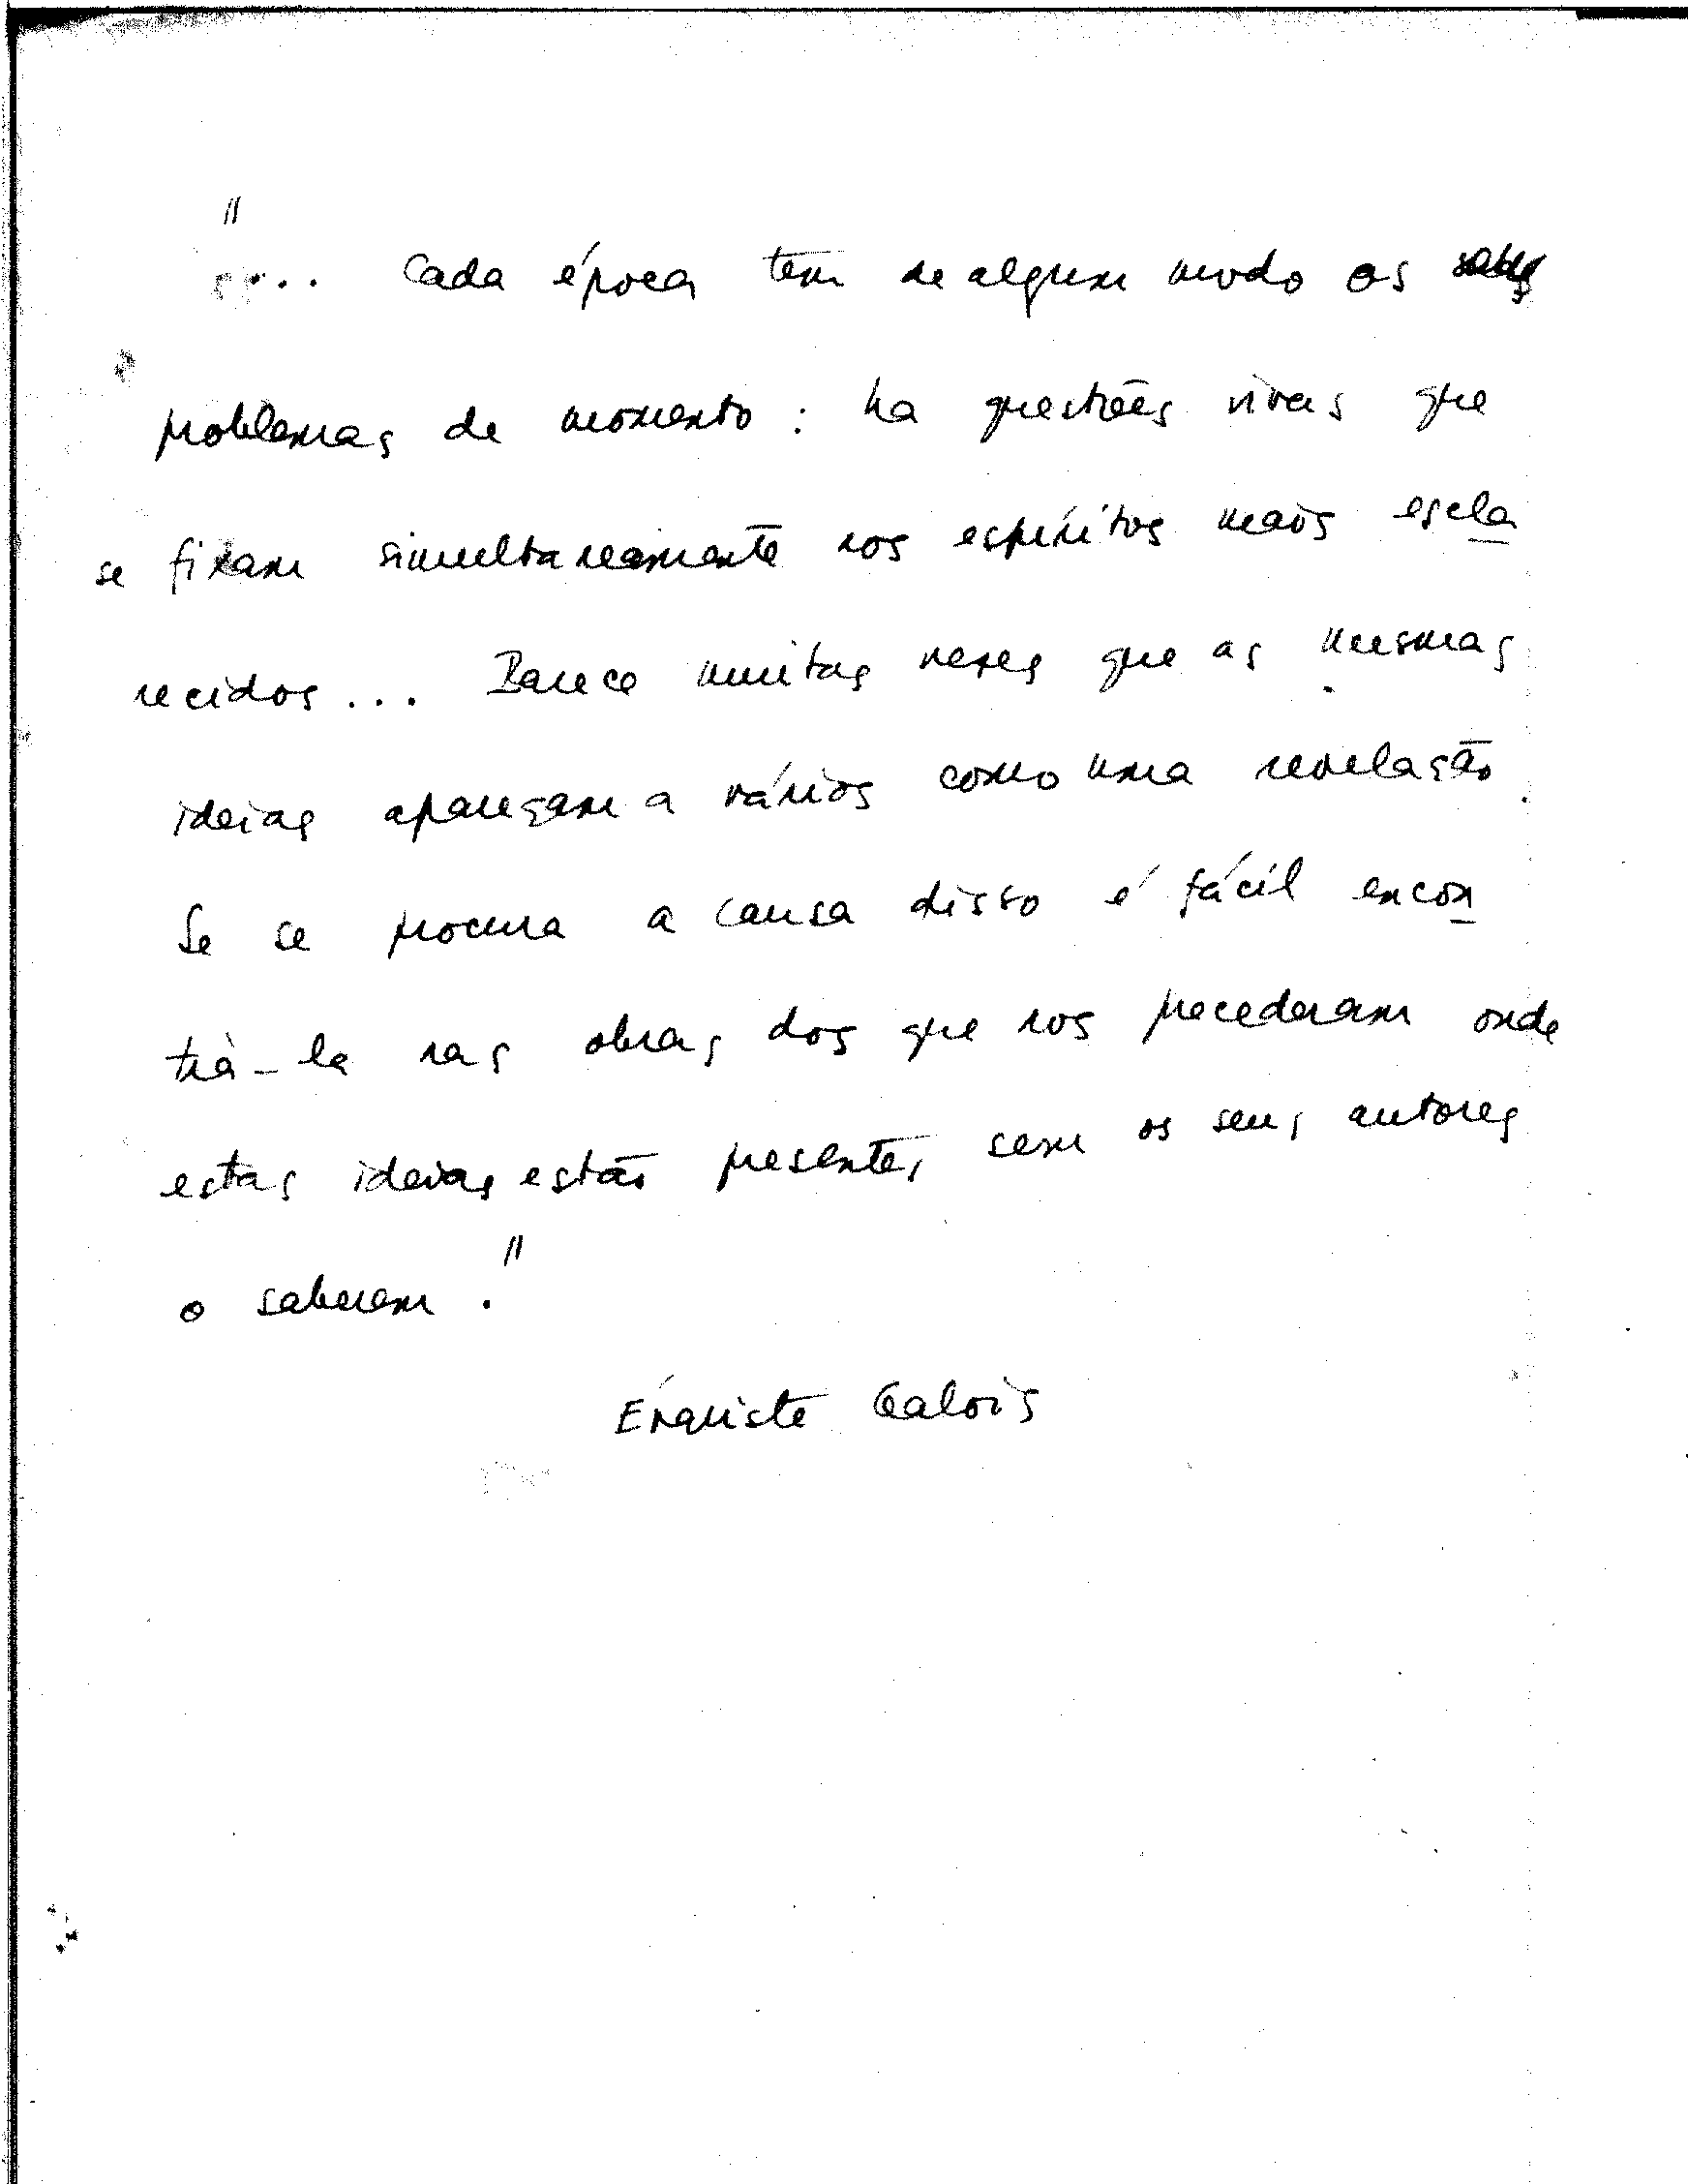 "... Cada época tem de algum modo os
problemas de momento : ha questões vivas que
se fixam simultaneamente nos espíritos mais escla
recidos ... Parece muitas vezes que as mesmas
ideias apareçam a vários como uma revelação.
Se se procura a causa disso é fácil encon
trá-la nas obras dos que nos precederam onde
estas ideias estão presentes sem os seus autores
o saberem ."
Évariste Galois